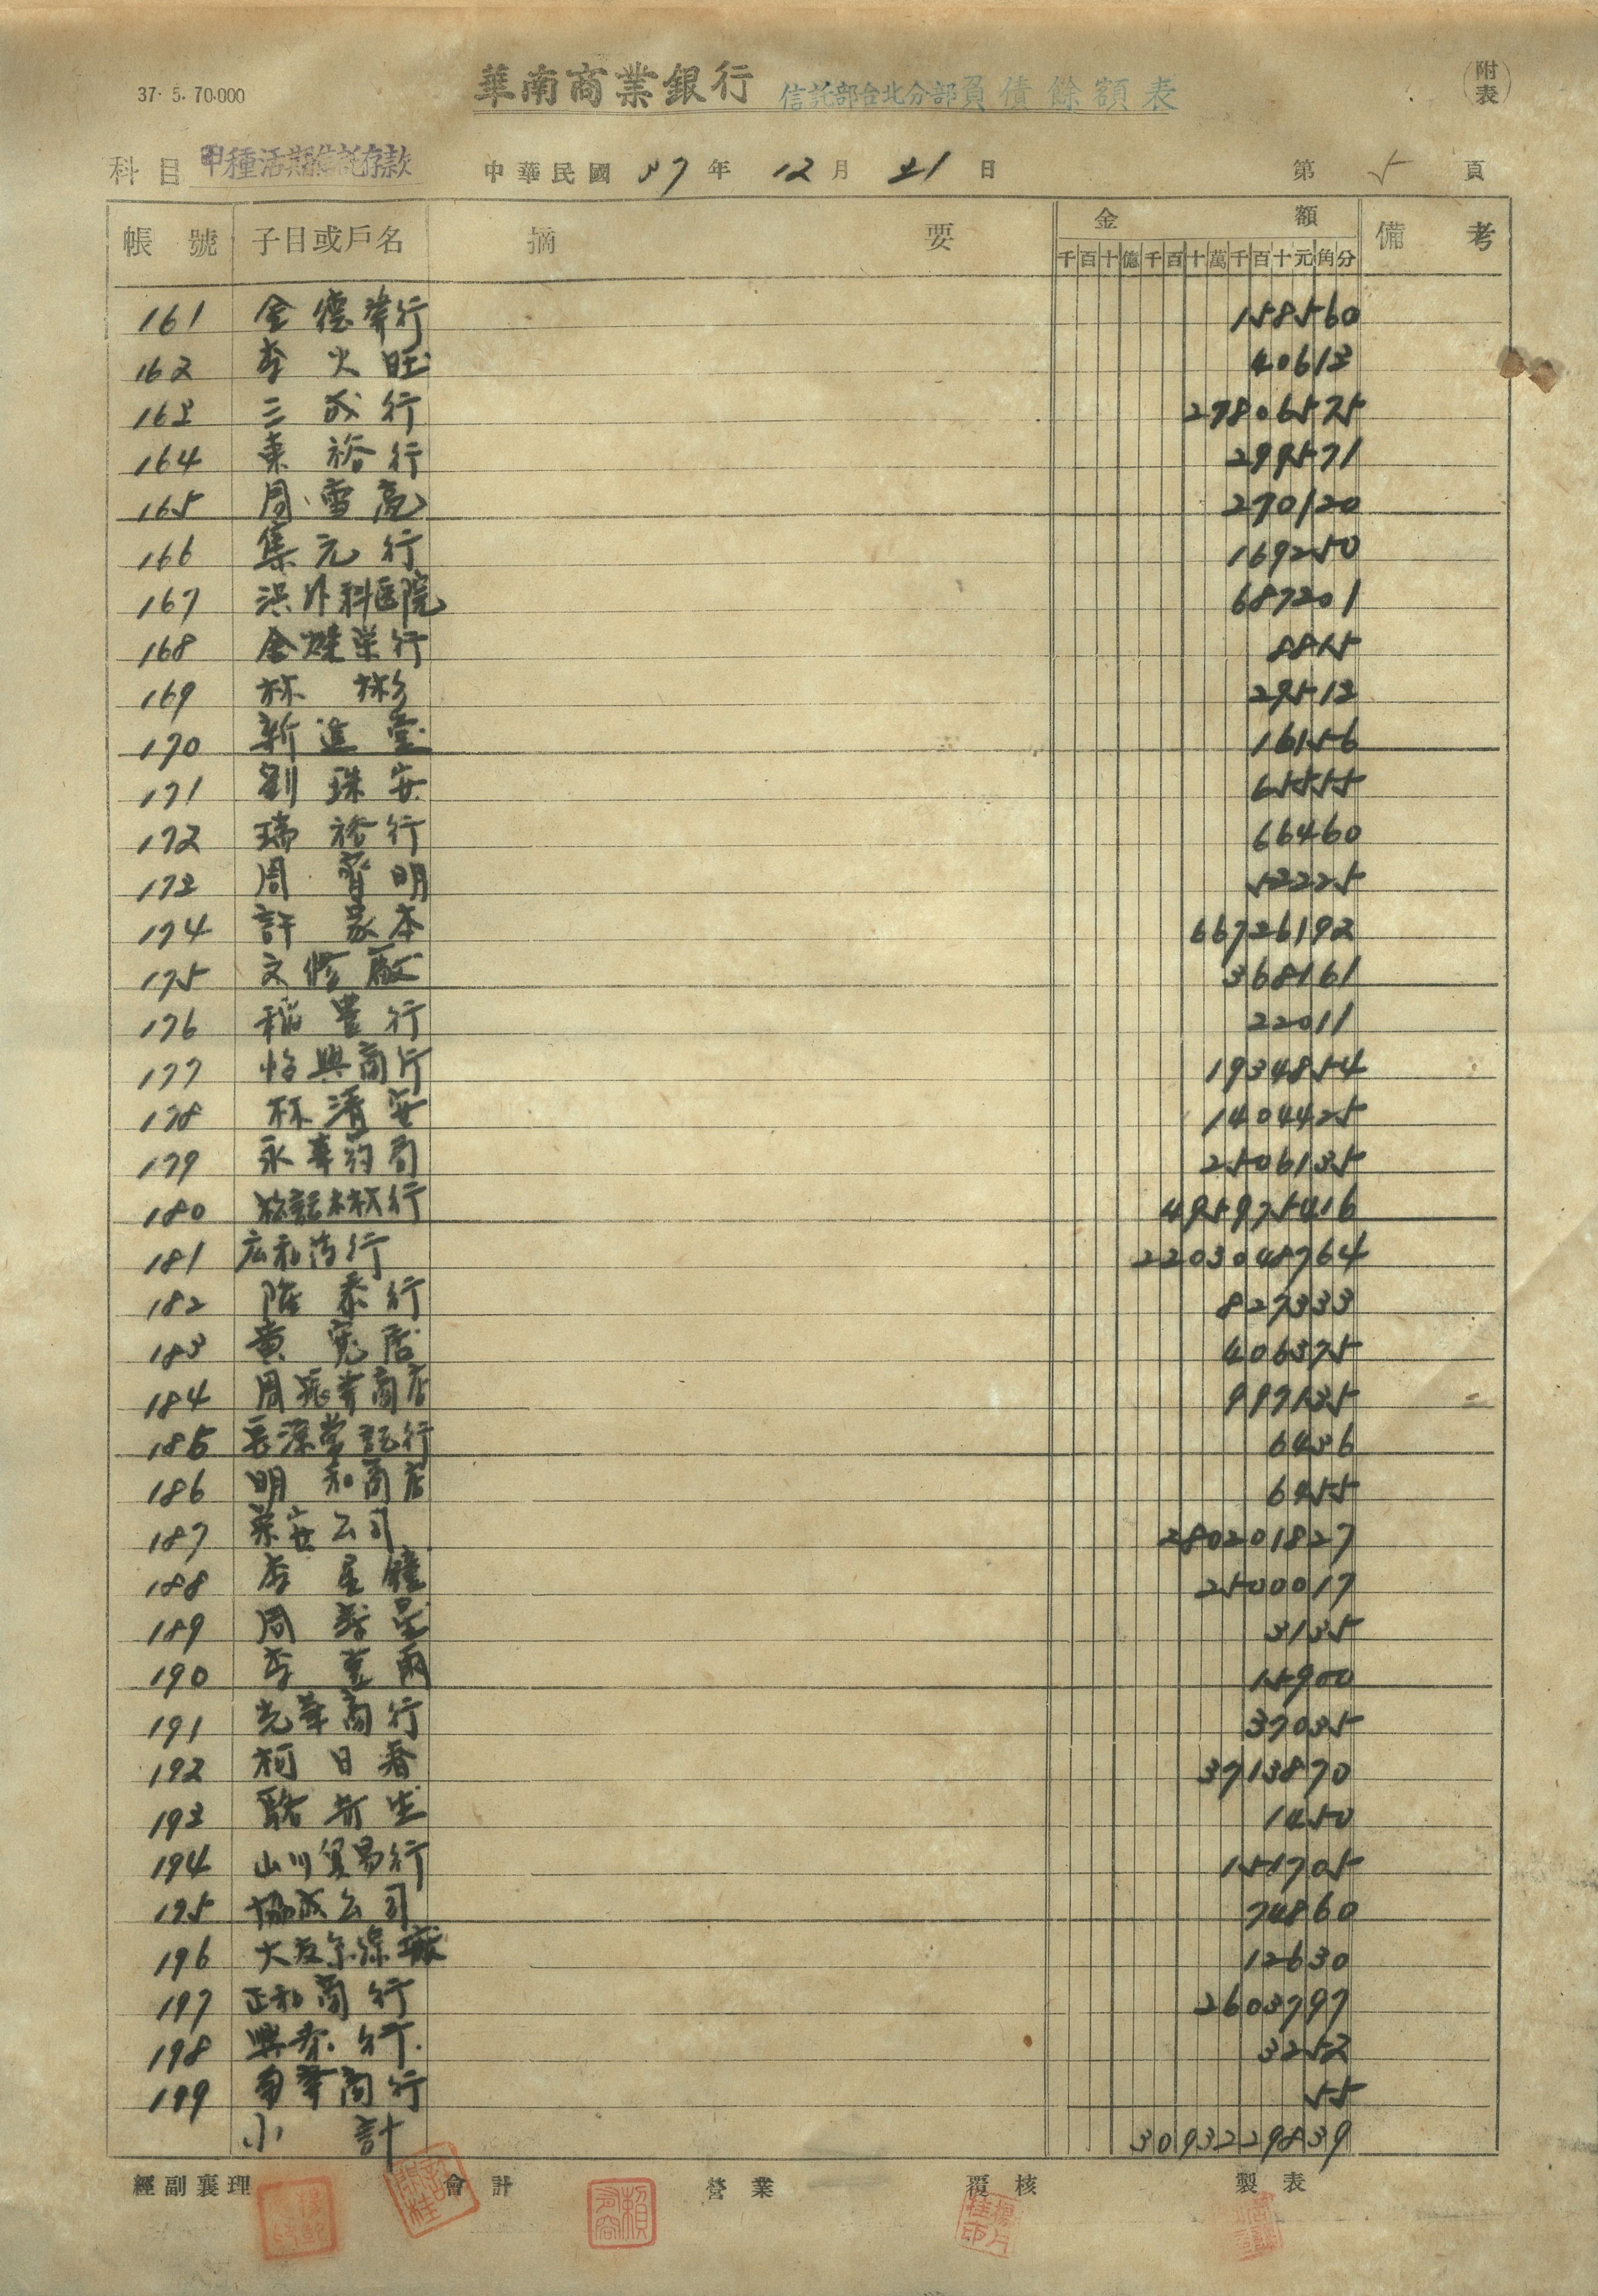 37.5.70.000
華南商業銀行 信託部台北分部負債餘額表
(附表)
科目 甲種活期信託存款 中華民國 37年 12月 21日 第 5 頁
帳號 子目或戶名 摘要 金額 備考
千百十億千百十萬千百十元角分
161 金德峯行 158560
162 李火旺 40613
163 三成行 27806575
164 東裕行 299571
165 周雪亮 270120
166 集元行 169250
167 洪外科医院 687201
168 金燦栄行 8815
169 林彬 29513
170 新進堂 16156
171 劉珠安 65555
172 瑞裕行 66460
173 周明 53225
174 許家本 66726192
175 文修廠 368161
176 稲豊行 22011
177 怡興商行 1934854
178 林清安 1404425
179 永春葯局 2506135
180 松記木材行 495975416
181 広和洽行 2203048764
182 隆泰行 827333
183 黄寬居 406375
184 周商店 997135
185 行 6436
186 明和商店 6455
187 栄安公司 280201827
188 李星鐘 2500017
189 周星 3135
190 李雨 15900
191 光華商行 37035
192 柯日春 3713870
193 駱生 1450
194 山川貿易行 151705
195 協成公司 74860
196 大友 12630
197 正和商行 2603797
198 興泰行 3252
199 南華商行 55
小計 3093229839
經副襄理 會計 營業 覆核 製表